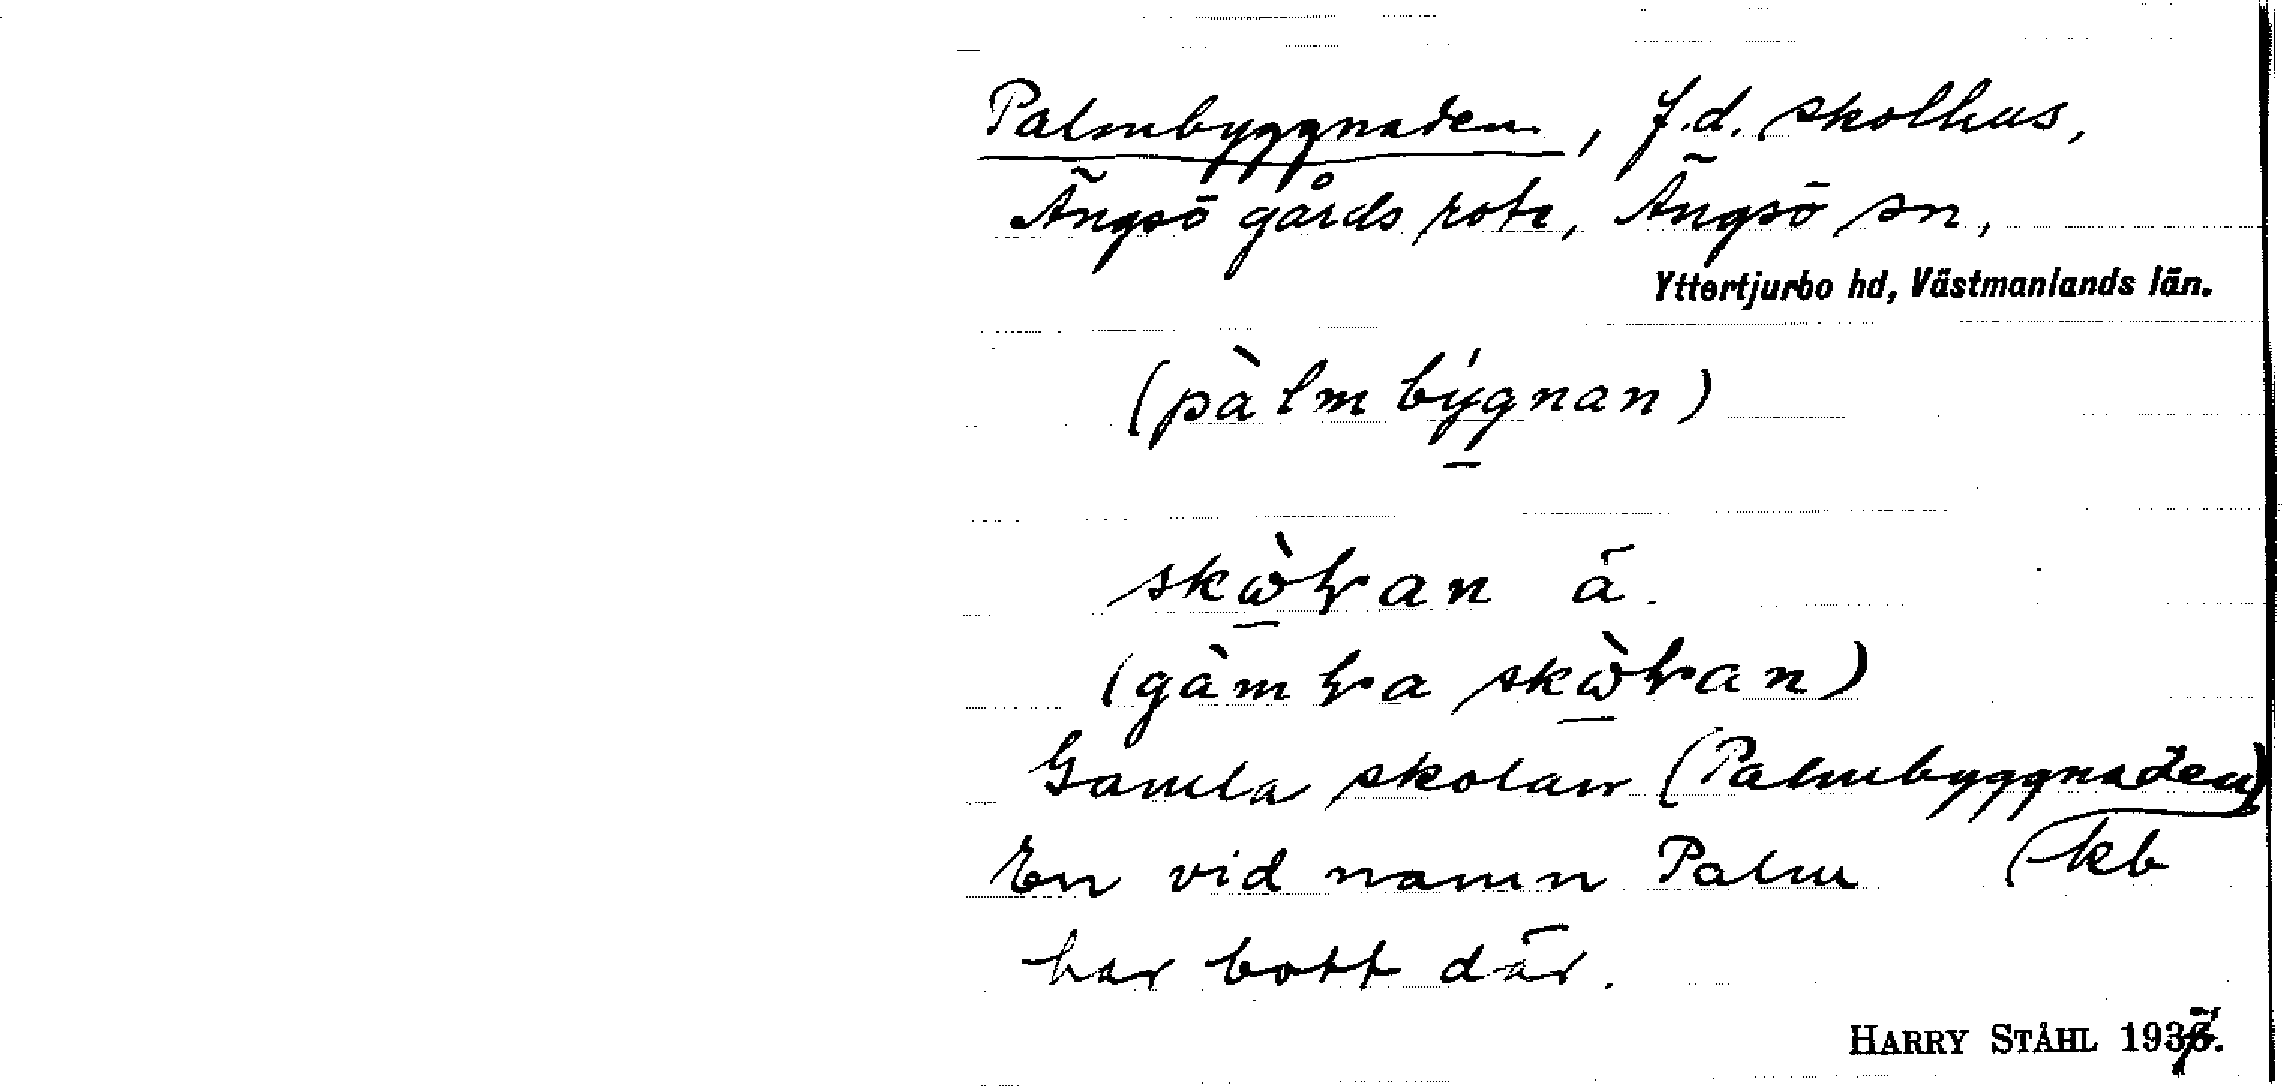 Palmbyggnaden, f.d. skolhus,
Ängsö gårds rote, Ängsö sn,
Yttertjurbo hd, Västmanlands län.
(pàlmbýgnan)
skὼꞎan ä.
(gàmꞎa skὼꞎan)
Gamla skolan (Palmbyggnaden)
En vid namn Palm (kb
har bott där.
HARRY STÅHL 1937.